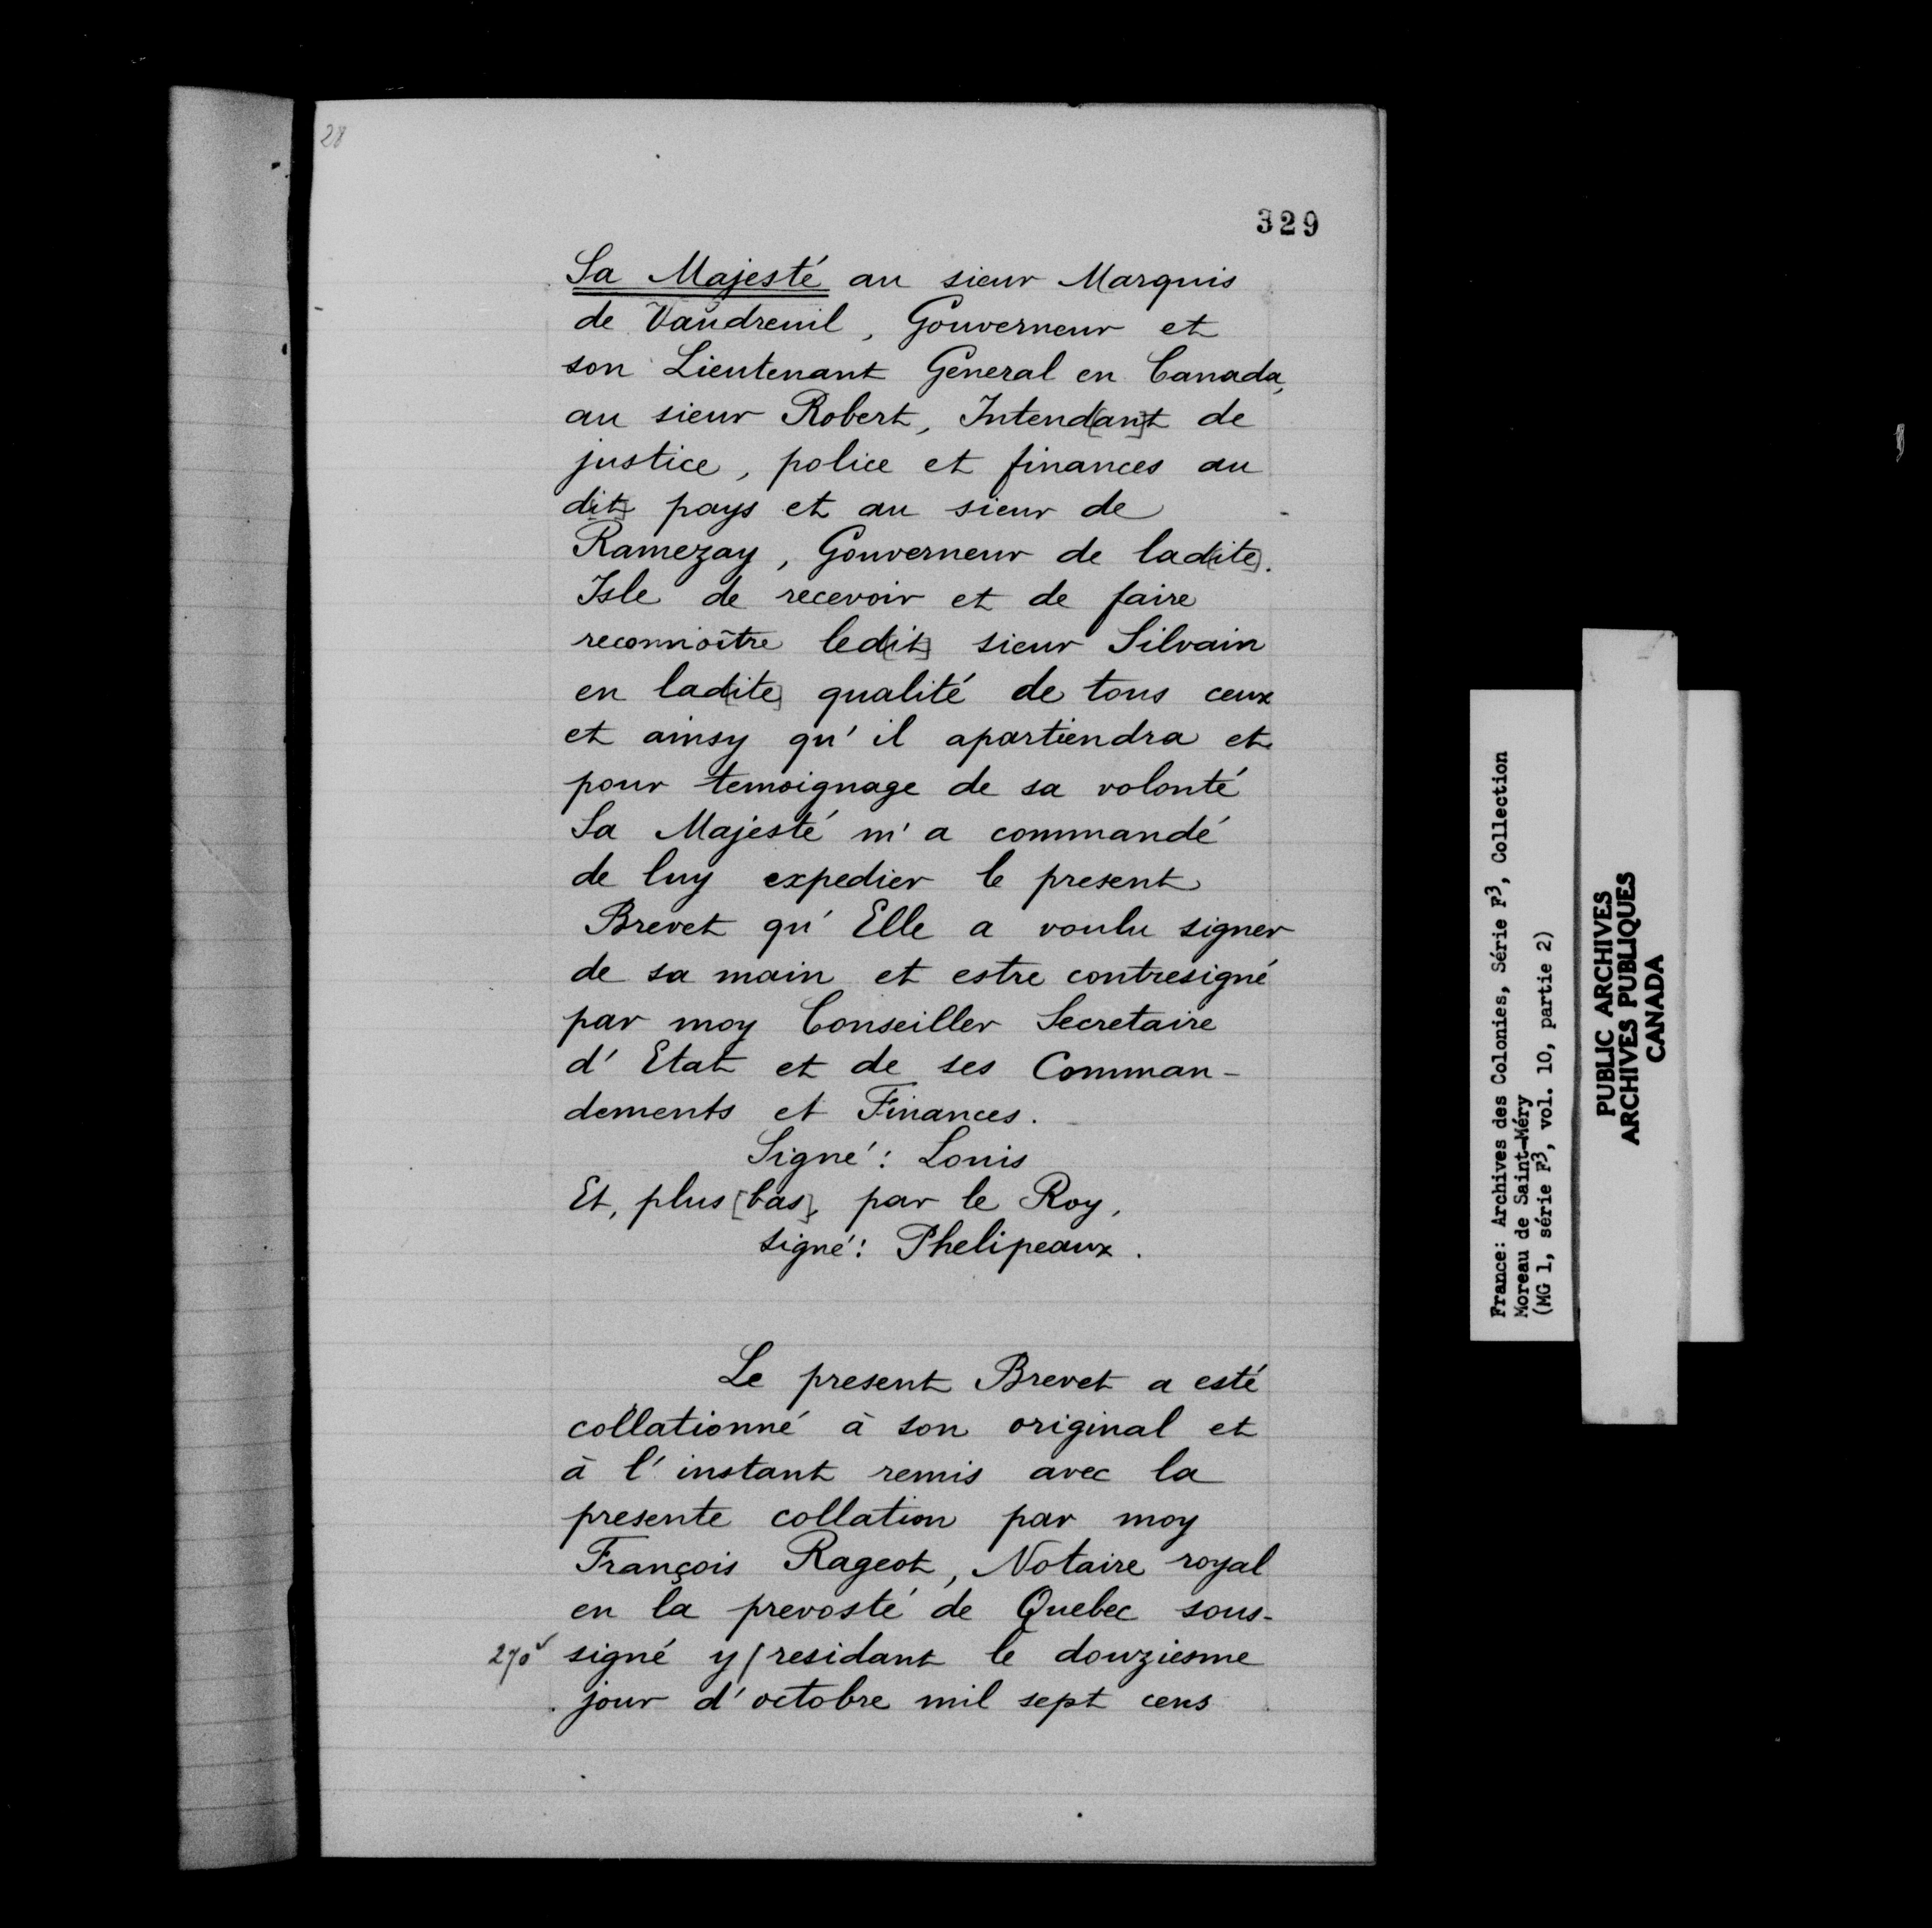 28
329
Sa Majesté au sieur Marquis
de Vaudreuil, Gouverneur et
son Lieutenant General en Canada,
au sieur Robert, Intend[an]t de
justice, police et finances au
d[it] pays et au sieur de
Ramezay, Gouverneur de lad[ite].
Isle de recevoir et de faire
reconnoître led[it] sieur Silvain
en lad[ite] qualité de tous ceux
et ainsy qu'il apartiendra et
pour temoignage de sa volonté
Sa Majesté m'a commandé
de luy expedier le present
Brevet qu'Elle a voulu signer
de sa main et estre contresigné
par moy Conseiller Secretaire
d'Etat et de ses Comman-
dements et Finances.
Signé: Louis
Et, plus [bas], par le Roy,
signé: Phelipeaux.
Le present Brevet a esté
collationné à son original et
à l'instant remis avec la
presente collation par moy
François Rageot, Notaire royal
en la prevosté de Quebec sous-
270v signé y/residant le douziesme
jour d'octobre mil sept cens
France: Archives des Colonies, Série F3, Collection
Moreau de Saint-Méry
(MG 1, série F3, vol. 10, partie 2)
PUBLIC ARCHIVES
ARCHIVES PUBLIQUES
CANADA